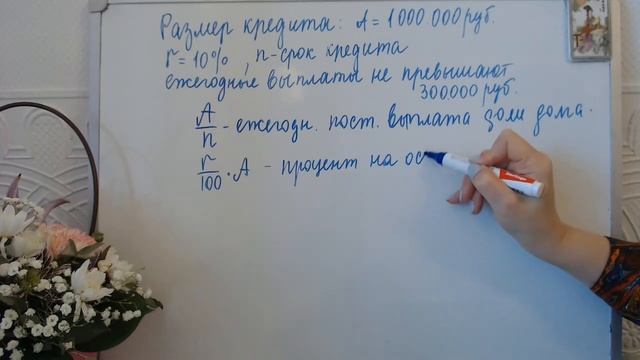 Размер кредита: A = 1000.000 руб.
r = 10% , n - срок кредита
ежегодные выплаты не превышают
300.000 руб.
A/n - ежегодн. пост. выплата доли дома.
r/100 · A - процент на ос